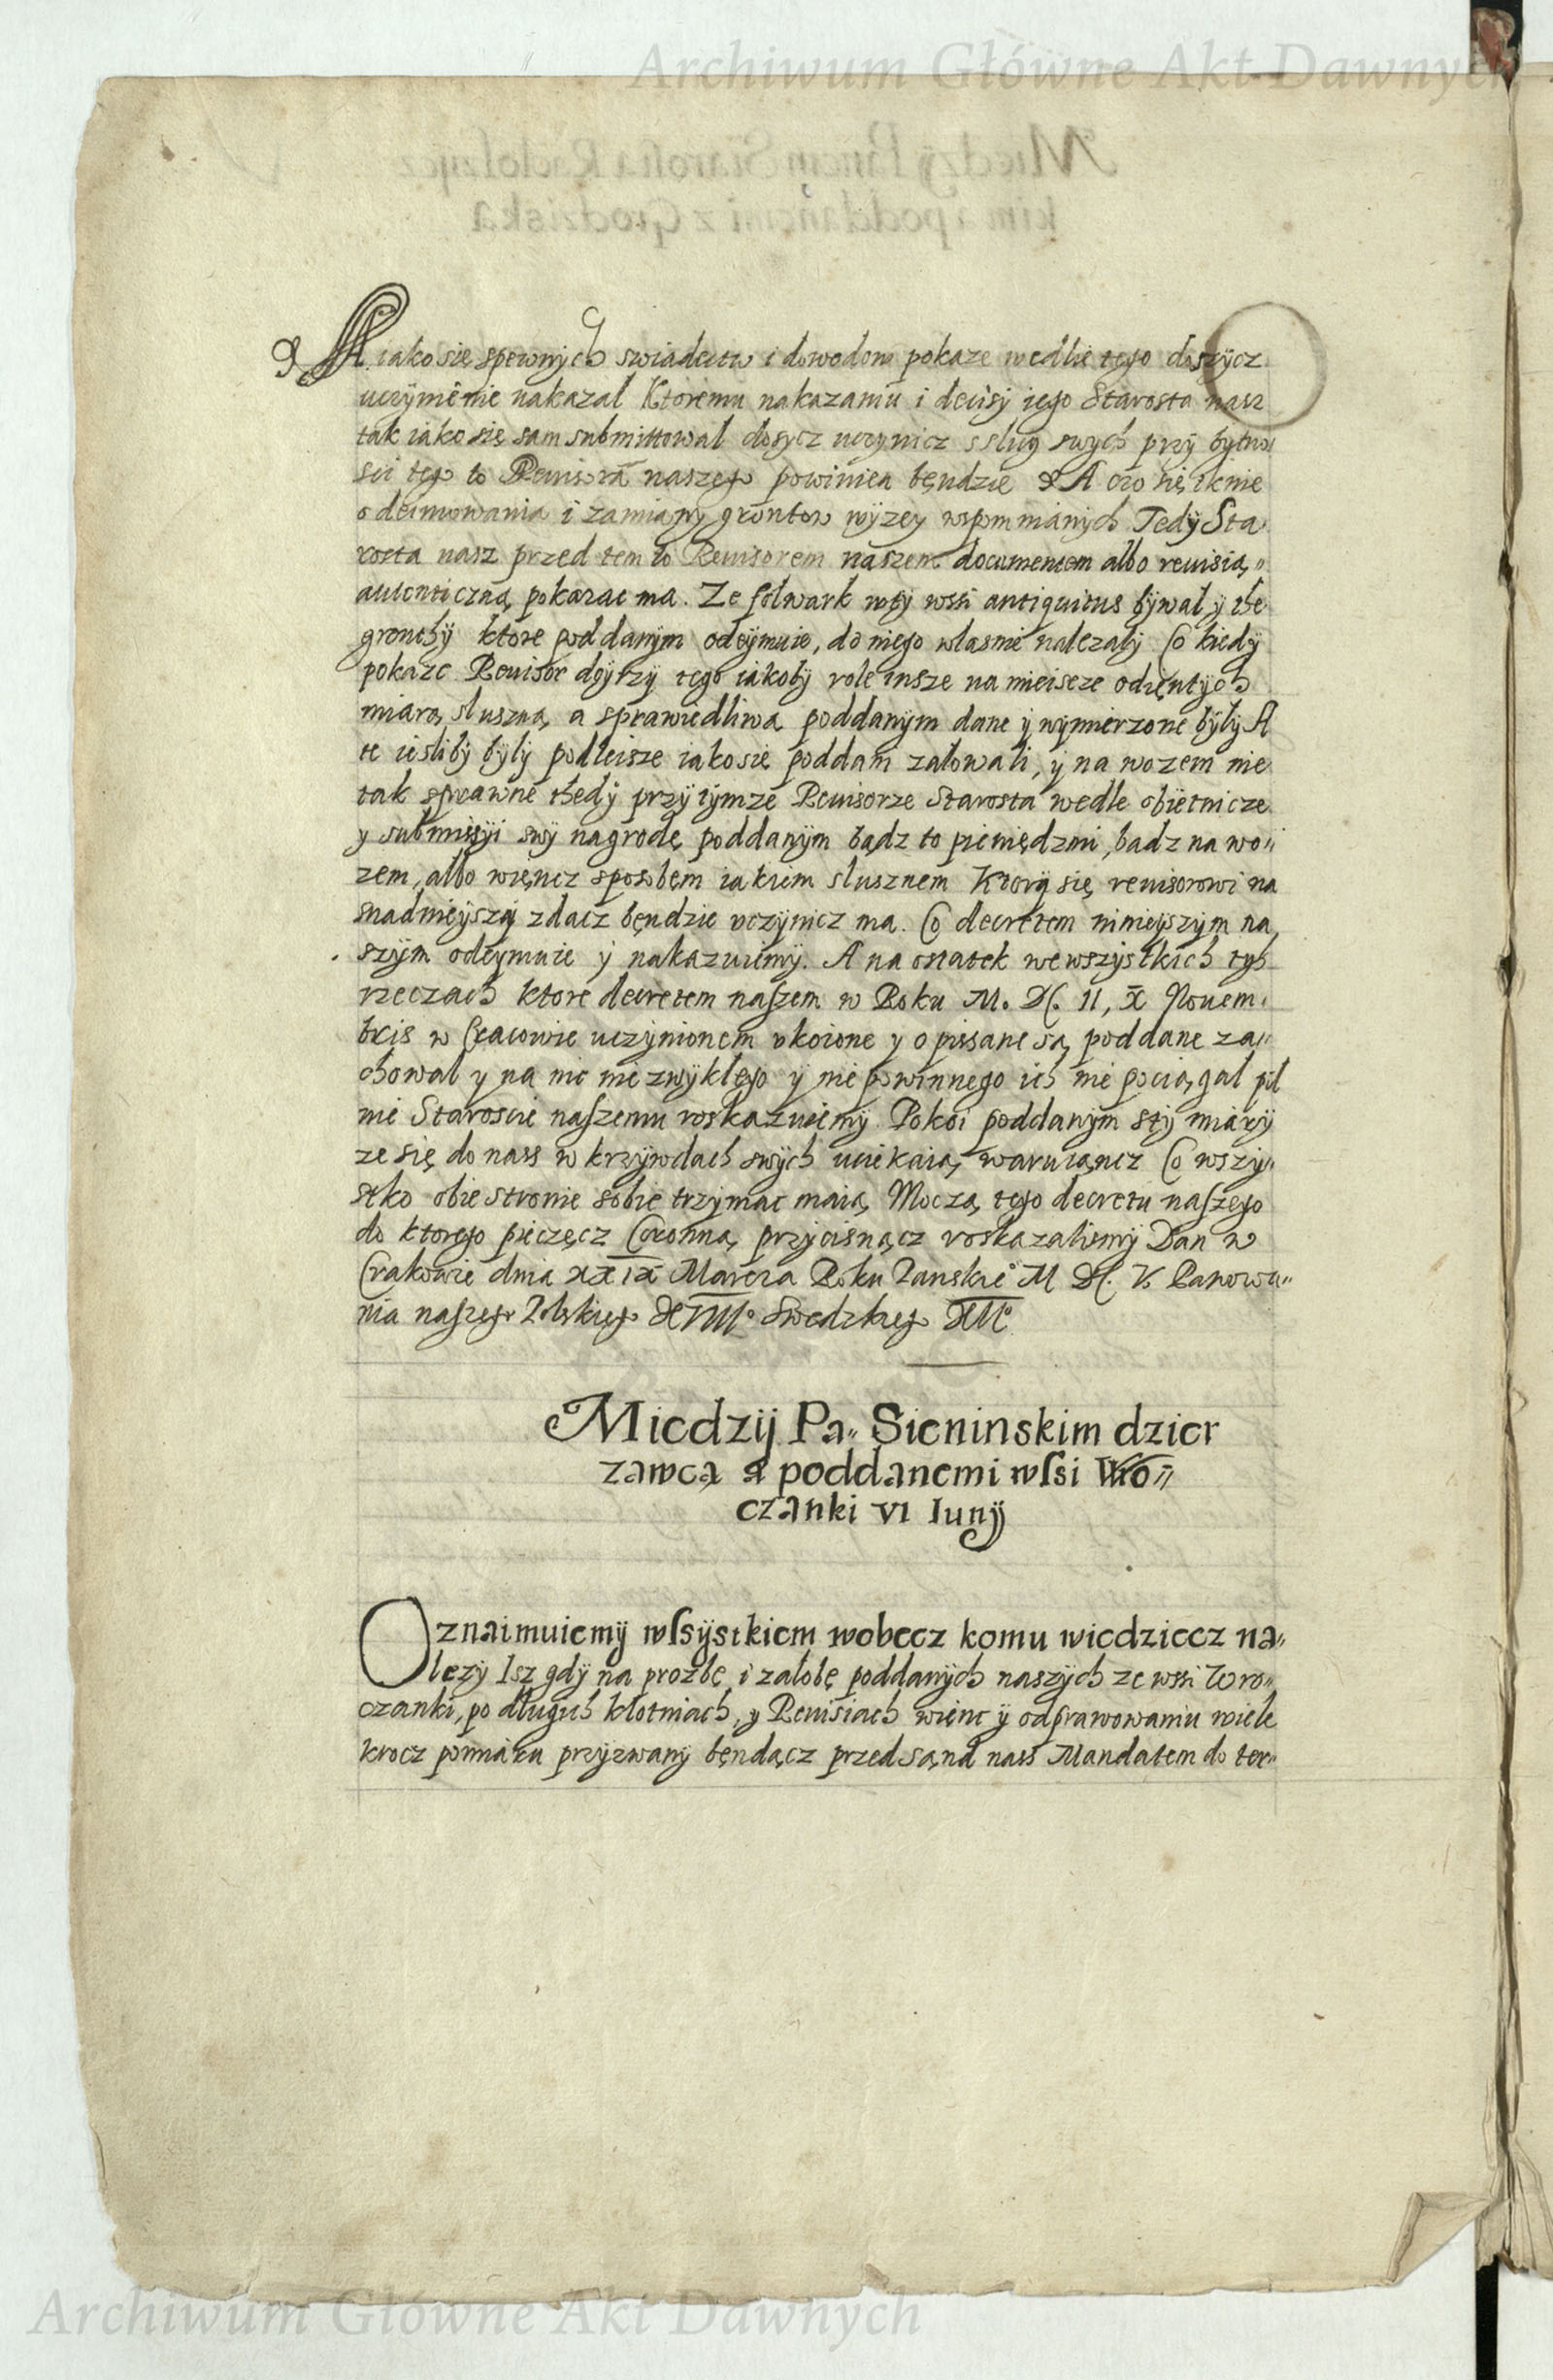 Archiwum Główne Akt Dawnych
A iako się spewnych swiadectw i dowodow pokaze wedlie tego dossycz
uczynienie nakazal Ktoremu nakazaniu i decisÿ iego Starosta nasz
tak iako się sam submittowal dosycz uczynicz s slug swych przÿ bytno
sci tego to Reuisora naszego powinien będzie & A cżo się tknie
odeimowania i zamiany grontow wÿzeÿ wspomnianych Tedÿ Sta
rosta nasz przed tem to Reuisorem naszem documentem albo reuisią
autenticzną pokazac ma. Ze folwark wtÿ wssi antiquitus bÿwal ÿ the
gronthÿ ktore poddanÿm odeÿmuie, do niego wlasnie nalezalÿ Co kiedÿ
pokaze Reuisor doÿrzÿ tego iakobÿ role insze na mieisce odiętÿch
miarą sluszną a sprawiedliwą poddanÿm dane ÿ wÿmierzone bÿlÿ A
te iesliby bÿlÿ podleisze iako się poddani zalowali, ÿ na wozem nie
tak sprawne thedÿ przÿ tÿmze Reuisorze Starosta wedle obietnicze
y submissÿi swÿ nagrodę poddanÿm bądz to pieniędzmi, badz na wo„
zem, albo więncz sposobem iakiem slusznem Ktorÿ się reuisorowi na
snadnieÿszÿ zdacz będzie vczÿnicz ma. Co decretem ninieÿszÿm na
szÿm odeÿmuie ÿ nakazuiemÿ. A na ostatek we wszÿstkich tÿch
rzeczach ktore decretem naszem w Roku M. DC. II, X Nouem.
bris w Cracowie uczÿnionem vkoione y opissane są poddane za„
chowal y na nic niezwÿklego ÿ niepowinnego ich nie pociągal pil
nie Staroscie naszemu roskazuiemÿ Pokoi poddanÿm stÿ miarÿ
ze się do nass w krzÿwdach swÿch uciekaią waruiąncz Co wszÿ„
stko obie stronie sobie trzÿmac maią Moczą tego decretu naszego
do ktorego pieczęcz Coronną przÿcisnącz roskazalismÿ Dan w
Crakowie dnia XXIX Marca Roku Panskie° M DC. V Panowa„
nia naszego Polskiego XVIII° Swedzkiego XII°
Miedzÿ Pa„ Sieninskim dzier
zawcą a poddanemi wssi Wro„
czanki VI Iunÿ
Oznaimuiemÿ wssÿstkiem wobecz komu wiedziecz na„
lezÿ Isz gdÿ na prozbę i zalobę poddanÿch naszÿch ze wssi Wro„
czanki, po dlugich klotniach, y Reuisiach wienc ÿ odprawowaniu wiele
krocz pomiaru przÿzwanÿ będącz przed sąnd nass Mandatem do ter„
Archiwum Główne Akt Dawnych